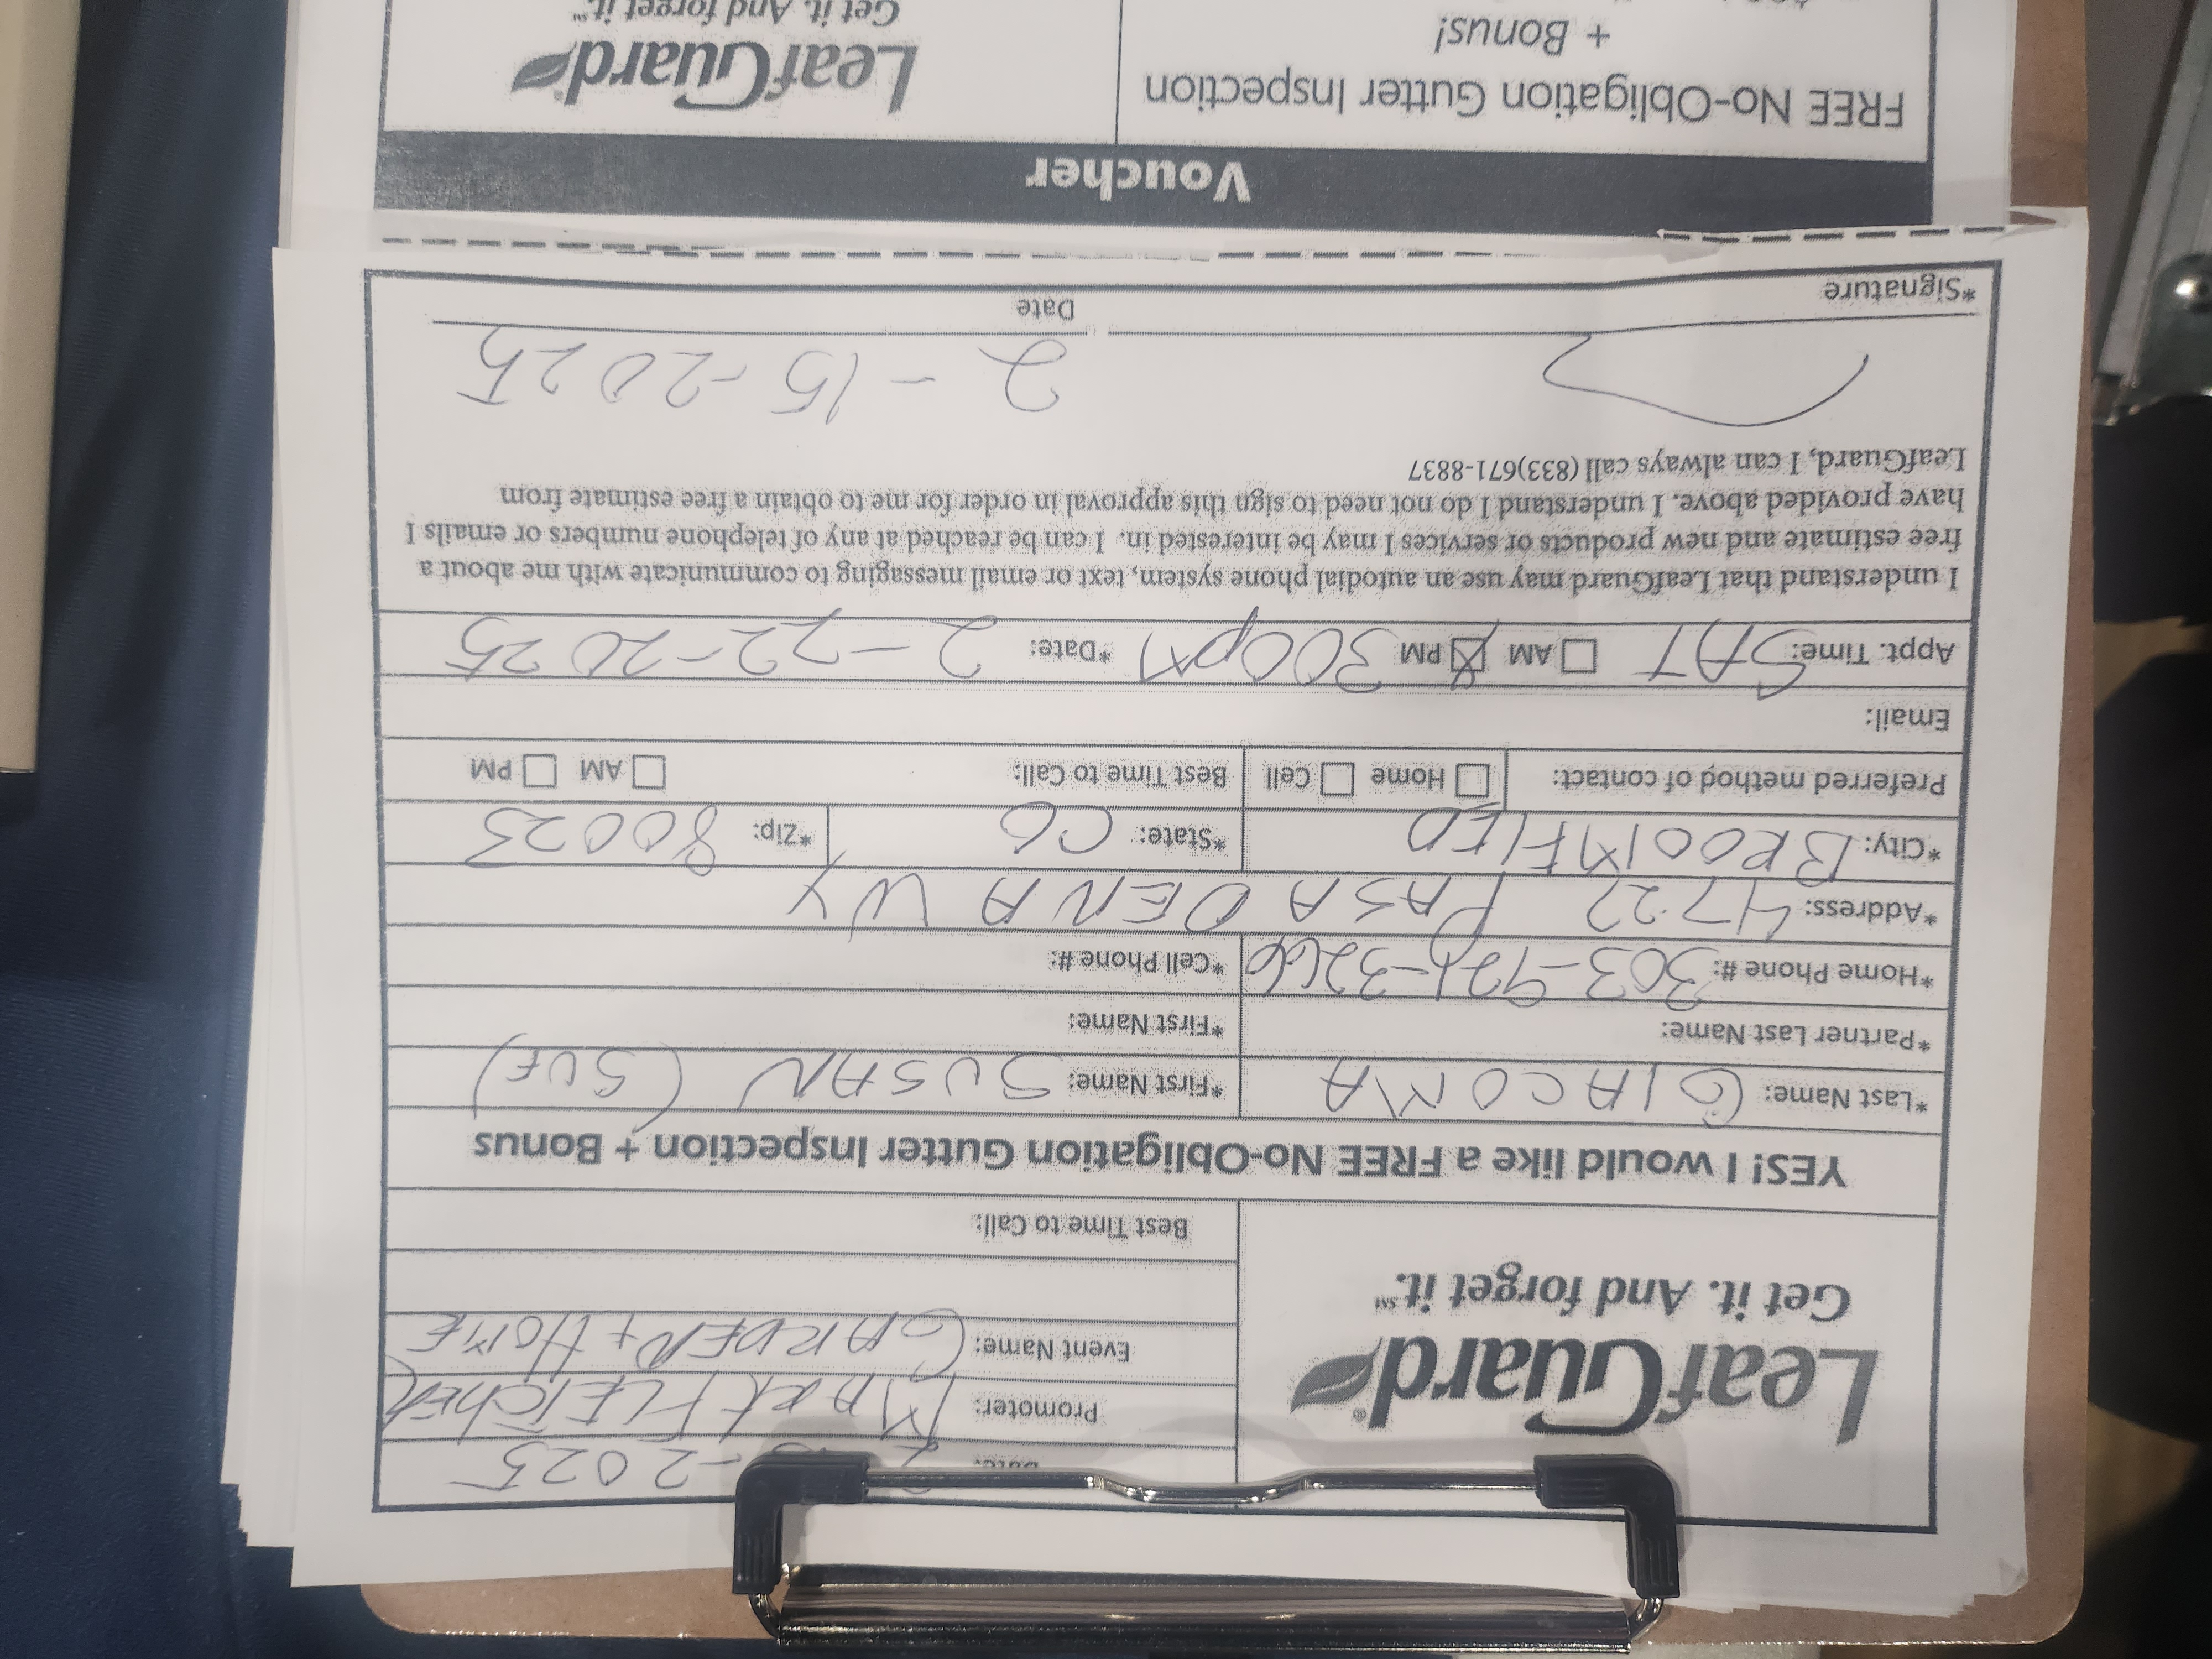 LeafGuard®
Get it. And forget it.℠
Date: -2025
Promoter: MARK FLETCHER
Event Name: GARDEN + HOME
Best Time to Call:
YES! I would like a FREE No-Obligation Gutter Inspection + Bonus
*Last Name: GIACOMA *First Name: SUSAN (SUE)
*Partner Last Name: *First Name:
*Home Phone #: 303-921-3266 *Cell Phone #:
*Address: 4722 PASADENA WY
*City: BROOMFIED *State: CO *Zip: 80023
Preferred method of contact: ☐ Home ☐ Cell Best Time to Call: ☐ AM ☐ PM
Email:
Appt. Time: SAT ☐ AM ☒ PM 300pM *Date: 2-22-2025
I understand that LeafGuard may use an autodial phone system, text or email messaging to communicate with me about a
free estimate and new products or services I may be interested in. I can be reached at any of telephone numbers or emails I
have provided above. I understand I do not need to sign this approval in order for me to obtain a free estimate from
LeafGuard, I can always call (833)671-8837
2-15-2025
*Signature Date
Voucher
FREE No-Obligation Gutter Inspection
+ Bonus!
LeafGuard®
Get it. And forget it.℠